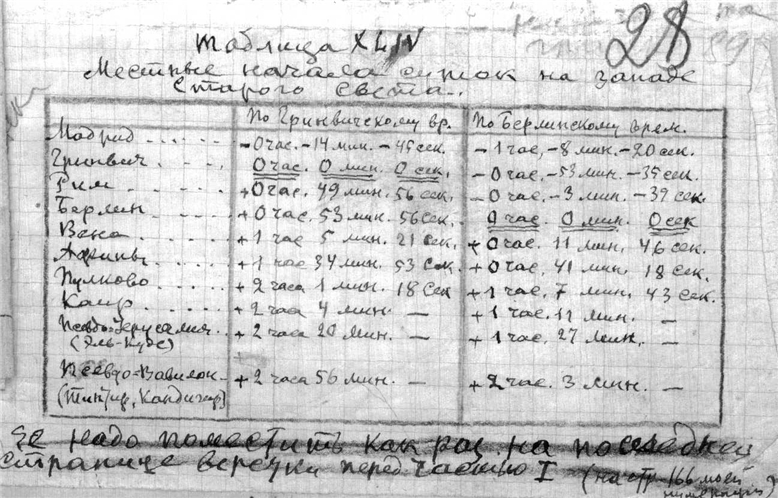 28
Таблица XLIV
Местные начала суток на западе
Старого Света.
По Гриничскому вр. По Берлинскому врем.
Мадрид - 0 час. - 14 мин. - 45 сек. - 1 час, - 8 мин. - 20 сек.
Гринвич 0 час. 0 мин. 0 сек. - 0 час. - 53 мин. - 35 сек.
Рим + 0 час. 49 мин. 56 сек. - 0 час. - 3 мин. - 39 сек.
Берлин + 0 час. 53 мин. 56 сек. 0 час. 0 мин. 0 сек
Вена + 1 час 5 мин. 21 сек. + 0 час. 11 мин, 46 сек.
Афины + 1 час 34 мин. 53 сек. + 0 час, 41 мин. 18 сек.
Пулково + 2 часа 1 мин. 18 сек + 1 час, 7 мин. 43 сек.
Каир + 2 час 4 мин. — + 1 час, 11 мин. —
Псевдо-Иерусалим + 2 часа 20 мин. — + 1 час, 27 мин. —
(Эль-Кудс)
Псевдо-Вавилон + 2 часа 56 мин. — + 2 час. 3 мин. —
надо поместить как раз на последней
странице верстки перед частью I (на стр 166 моей